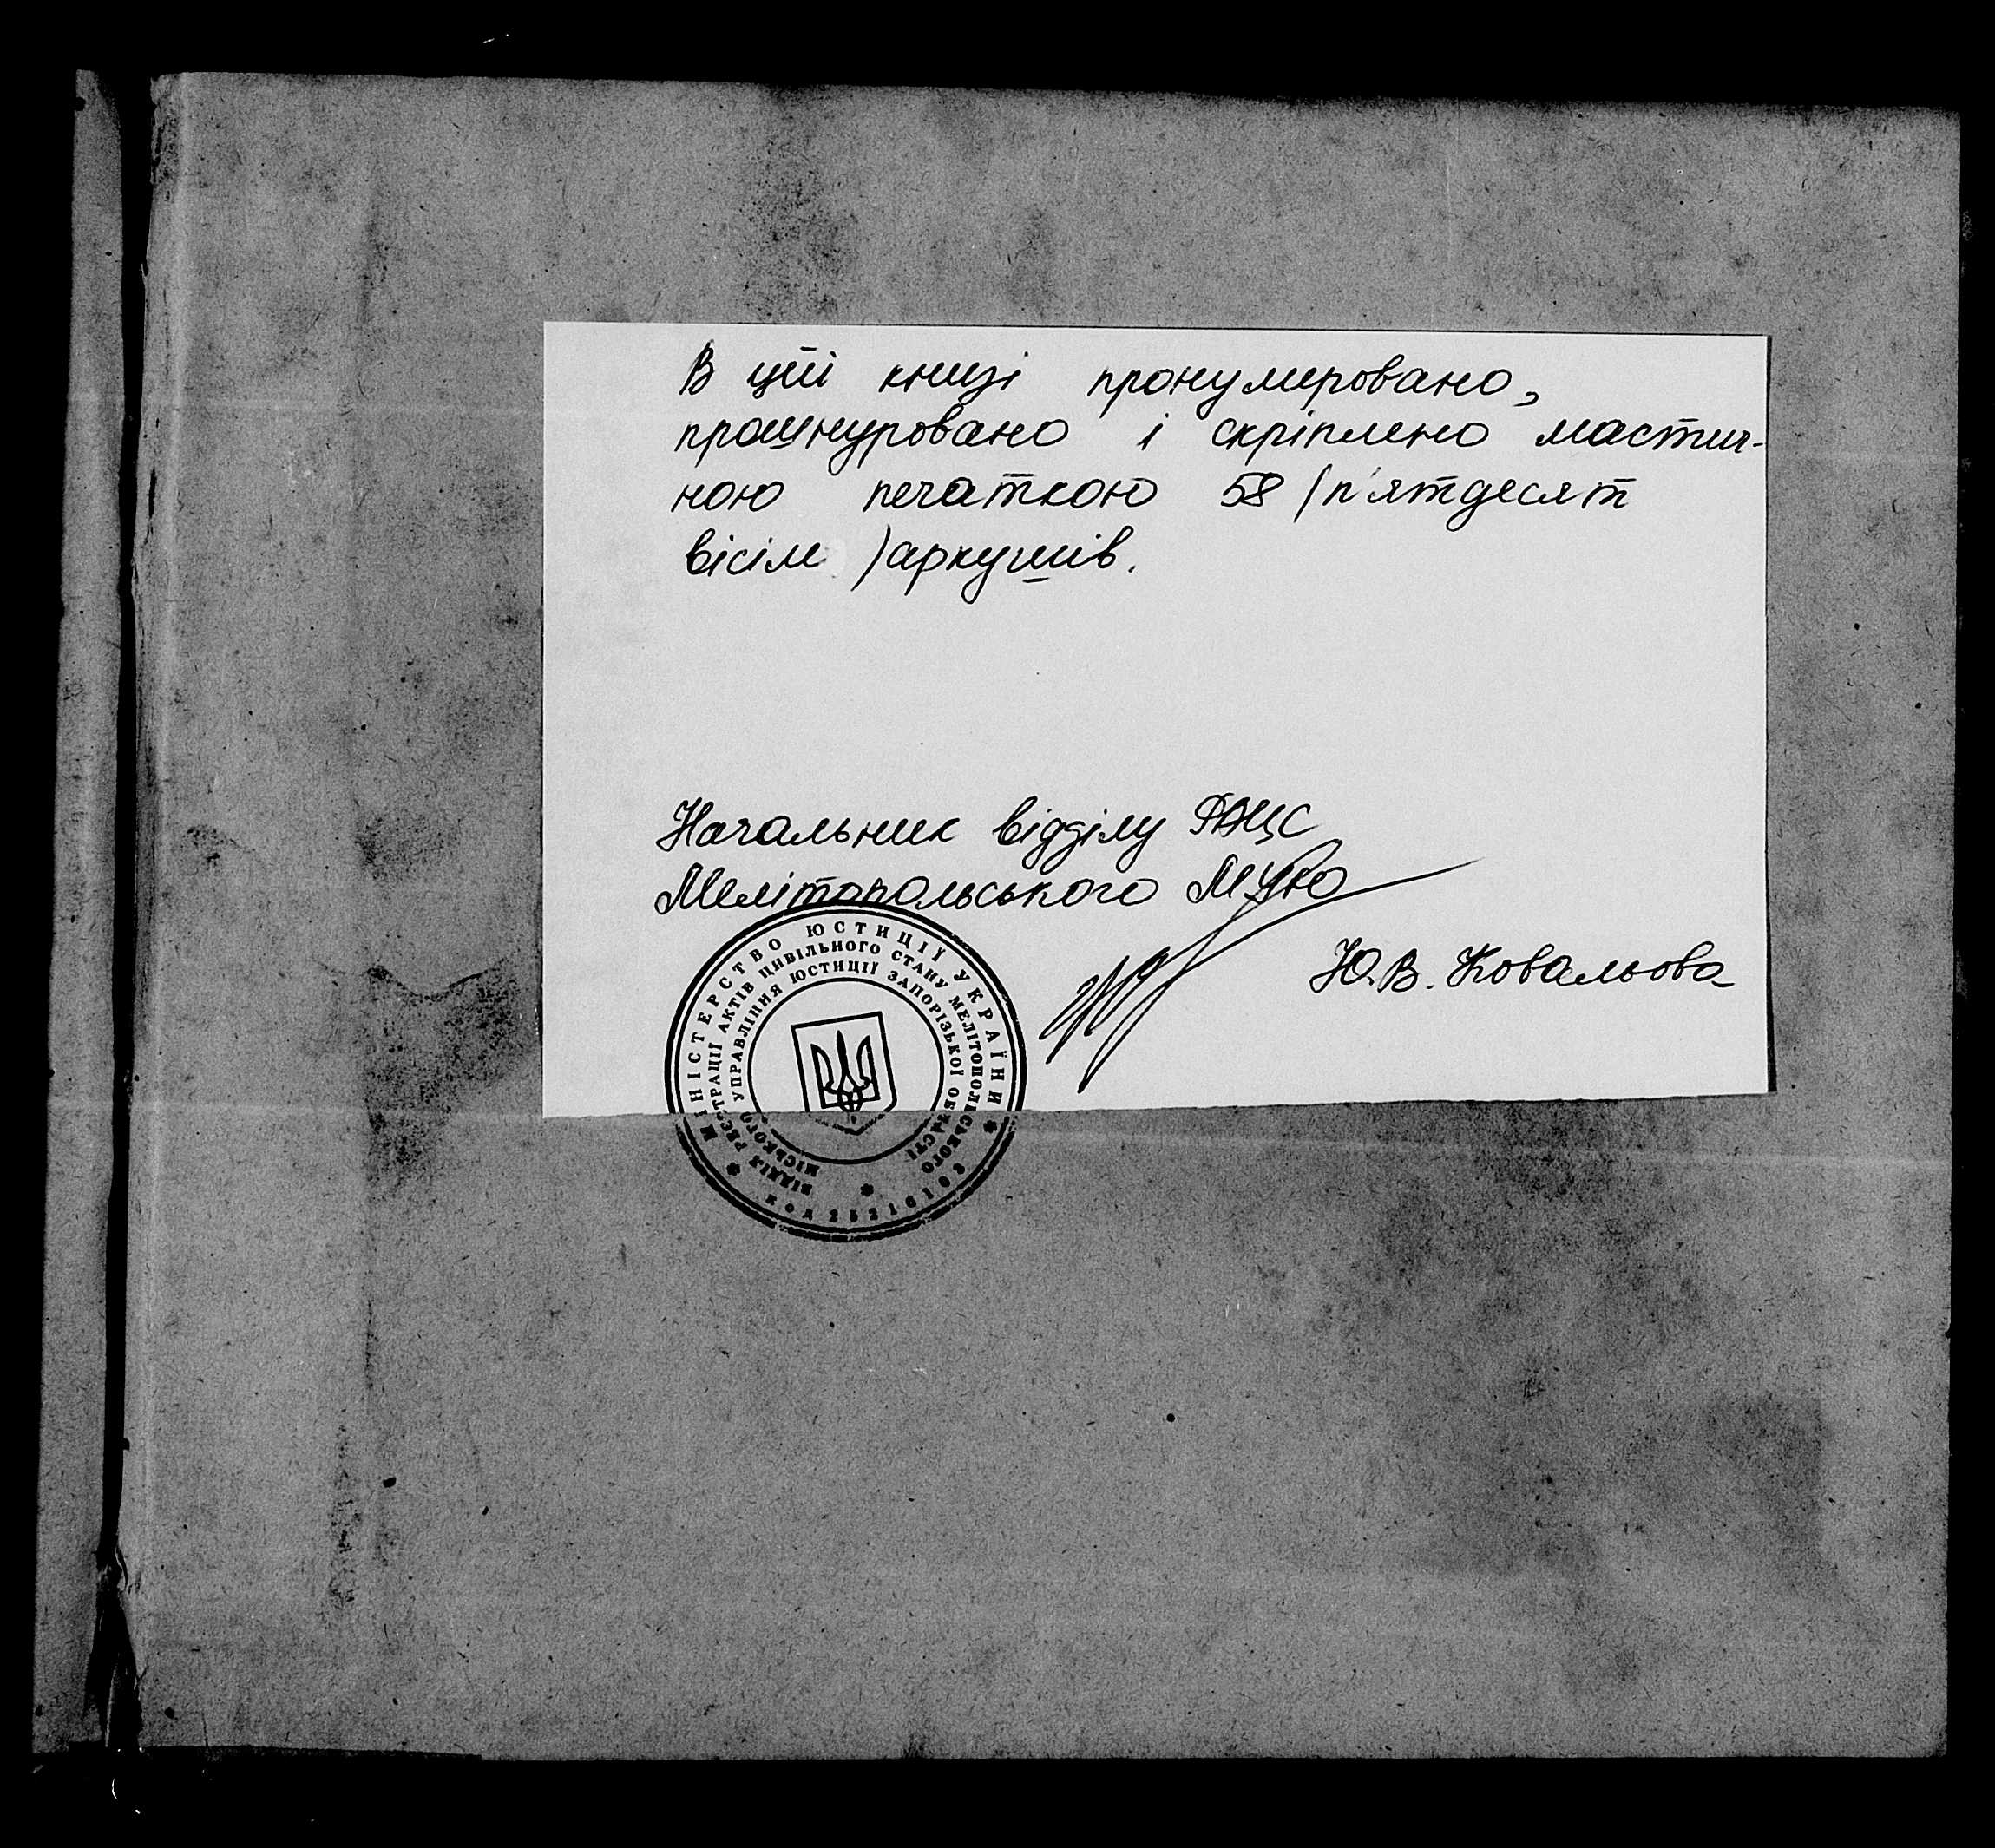 В цій книзі пронумеровано,
прошнуровано і скріплено мастич-
ною печаткою 58 /п'ятдесят
вісім /аркушів.
Начальник відділу РАЦС
Мелітопольського МУЮ
Ю.В. Ковальова
МІНІСТЕРСТВО ЮСТИЦІЇ УКРАЇНИ *
ВІДДІЛ РЕЄСТРАЦІЇ АКТІВ ЦИВІЛЬНОГО СТАНУ МЕЛІТОПОЛЬСЬКОГО
МІСЬКОГО УПРАВЛІННЯ ЮСТИЦІЇ ЗАПОРІЗЬКОЇ ОБЛАСТІ
* код